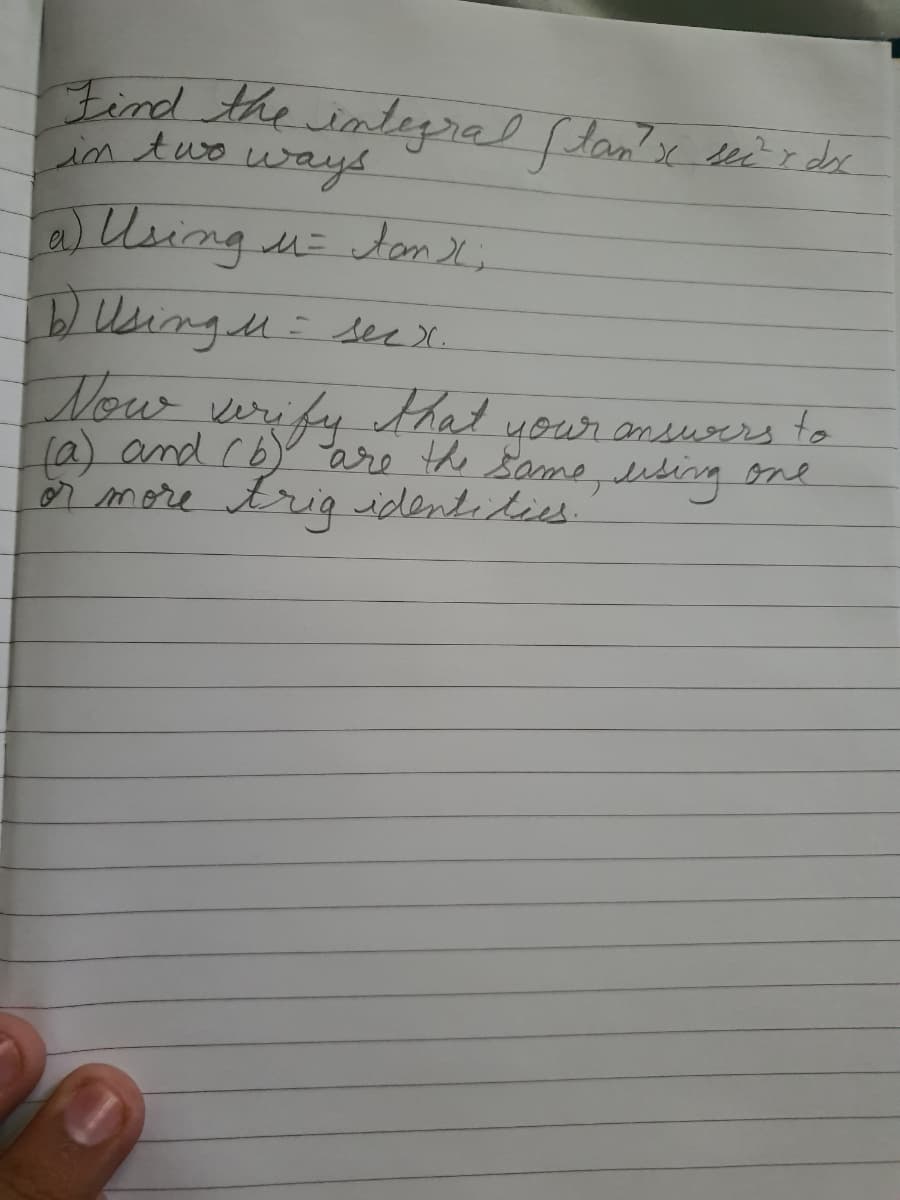 Find the integral ∫tan⁷x sec²x dx
in two ways
a) Using u = tan x;
b) Using u = sec x.
Now verify that your answers to
(a) and (b) are the same, using one
or more trig identities.